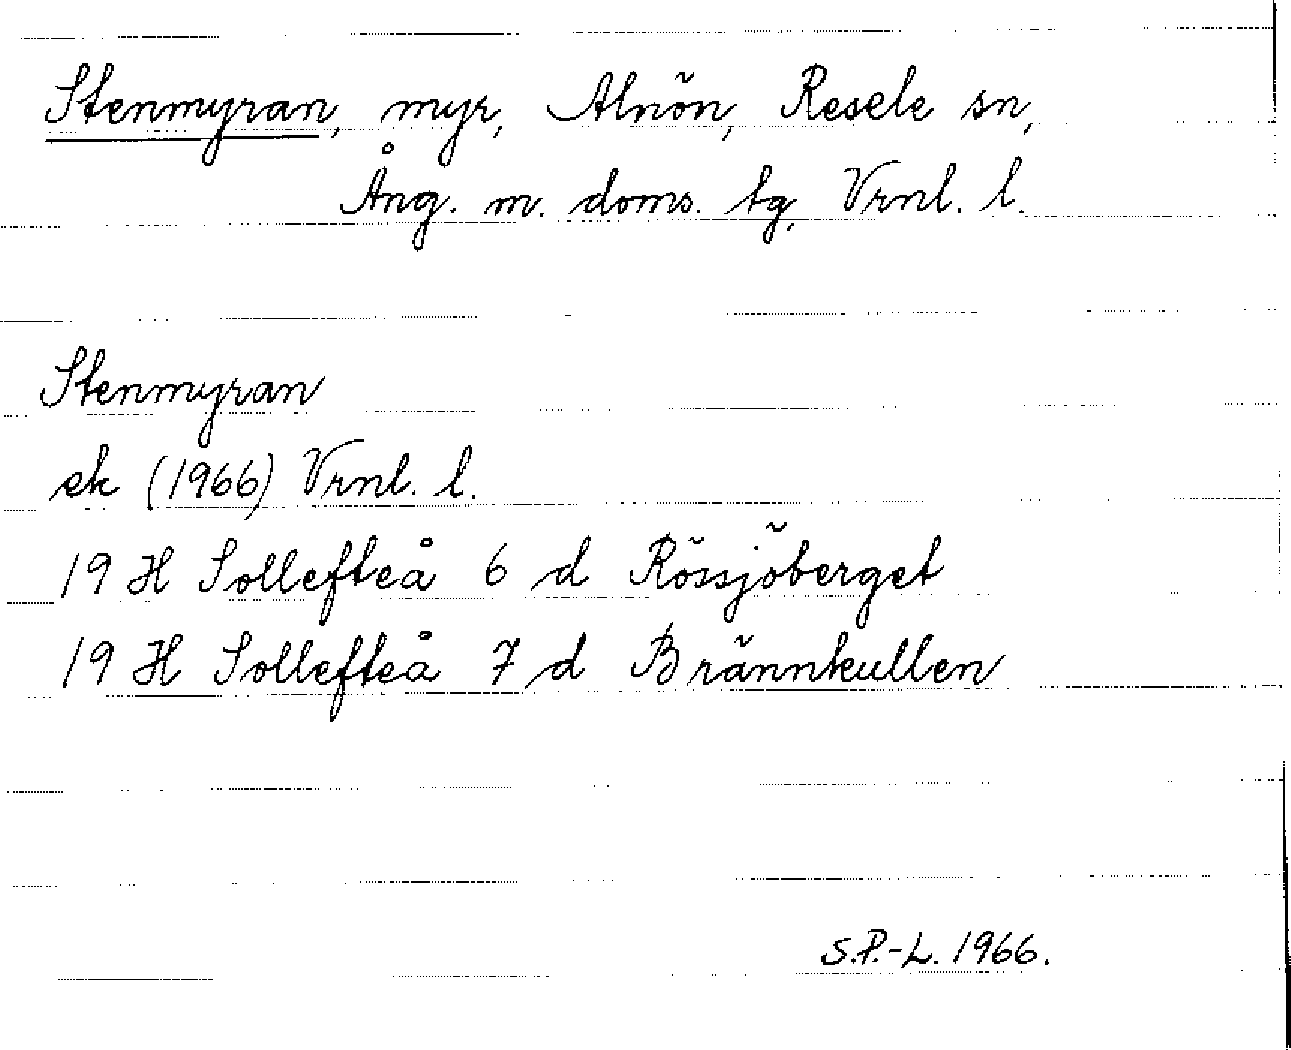 Stenmyran, myr, Alnön, Resele sn,
Ång. m. doms. tg, Vrnl. l.
Stenmyran
ek (1966) Vrnl. l.
19 H Sollefteå 6 d Rössjöberget
19 H Sollefteå 7 d Brännkullen
S.P.-L. 1966.